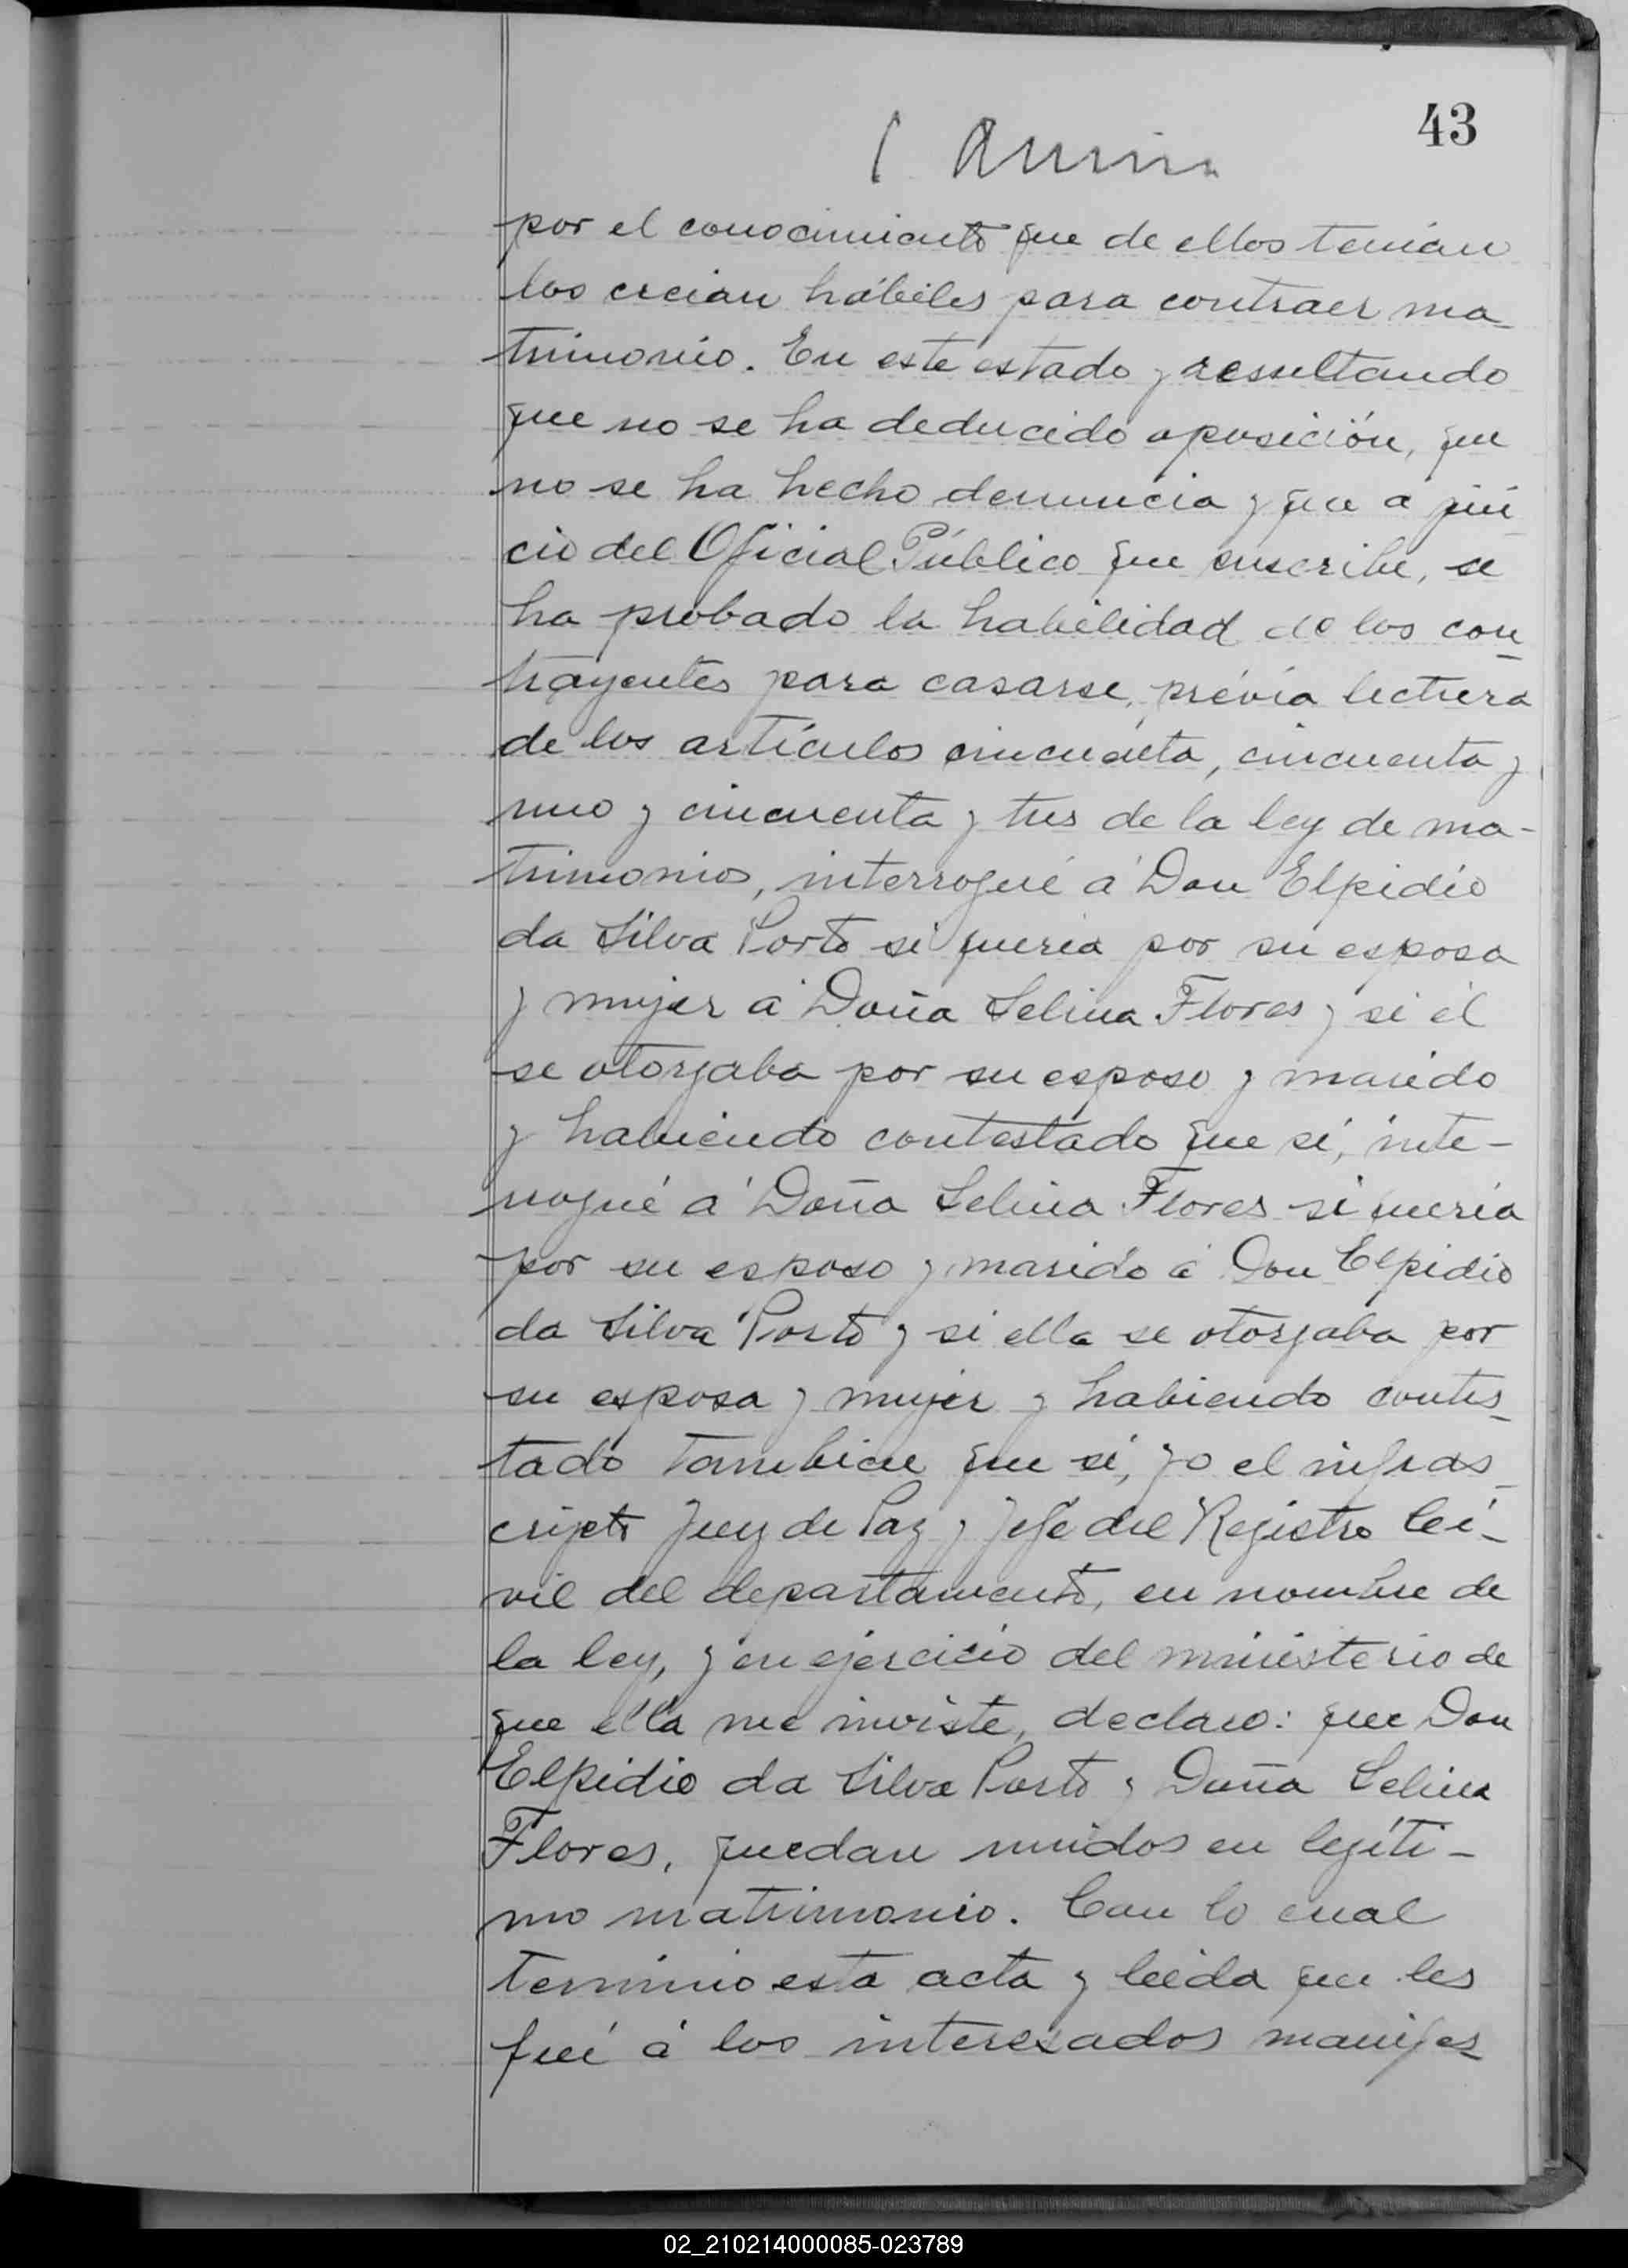 43
por el conocimiento que de ellos tenían
los creian hábiles para contraer ma-
trimonio. En este estado y resultando
que no se ha deducido oposición, que
no se ha hecho denuncia y que á jui-
cio del Oficial Público que suscribe, se
ha probado la habilidad de los con-
trayentes para casarse, prévia lectura
de los artículos cincuenta, cincuenta y
uno y cincuenta y tres de la ley de ma-
trimonios, interrogué á Don Elpidio
da Silva Porto si quería por su esposa
y mujer á Doña Selina Flores y si él
se otorgaba por su esposo y marido
y habiendo contestado que sí, inte-
rrogué á Doña Selina Flores si quería
por su esposo y marido á Don Elpidio
da Silva Porto y si ella se otorgaba por
su esposa y mujer y habiendo contes-
tado tambien que sí, yo el infras-
cripto Juez de Paz y Jefe del Registro Ci-
vil del departamento, en nombre de
la ley, y en ejercicio del ministerio de
que ella me inviste, declaro: que Don
Elpidio da Silva Porto y Doña Selina
Flores, quedan unidos en legíti-
mo matrimonio. Con lo cual
terminó esta acta y leida que les
fué á los interesados manifes-
02_210214000085-023789